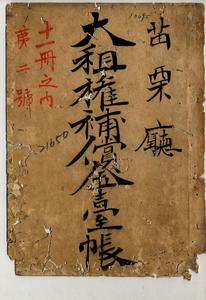 苗栗廳
大租權補償金臺帳
十一冊之內
第二號
21650